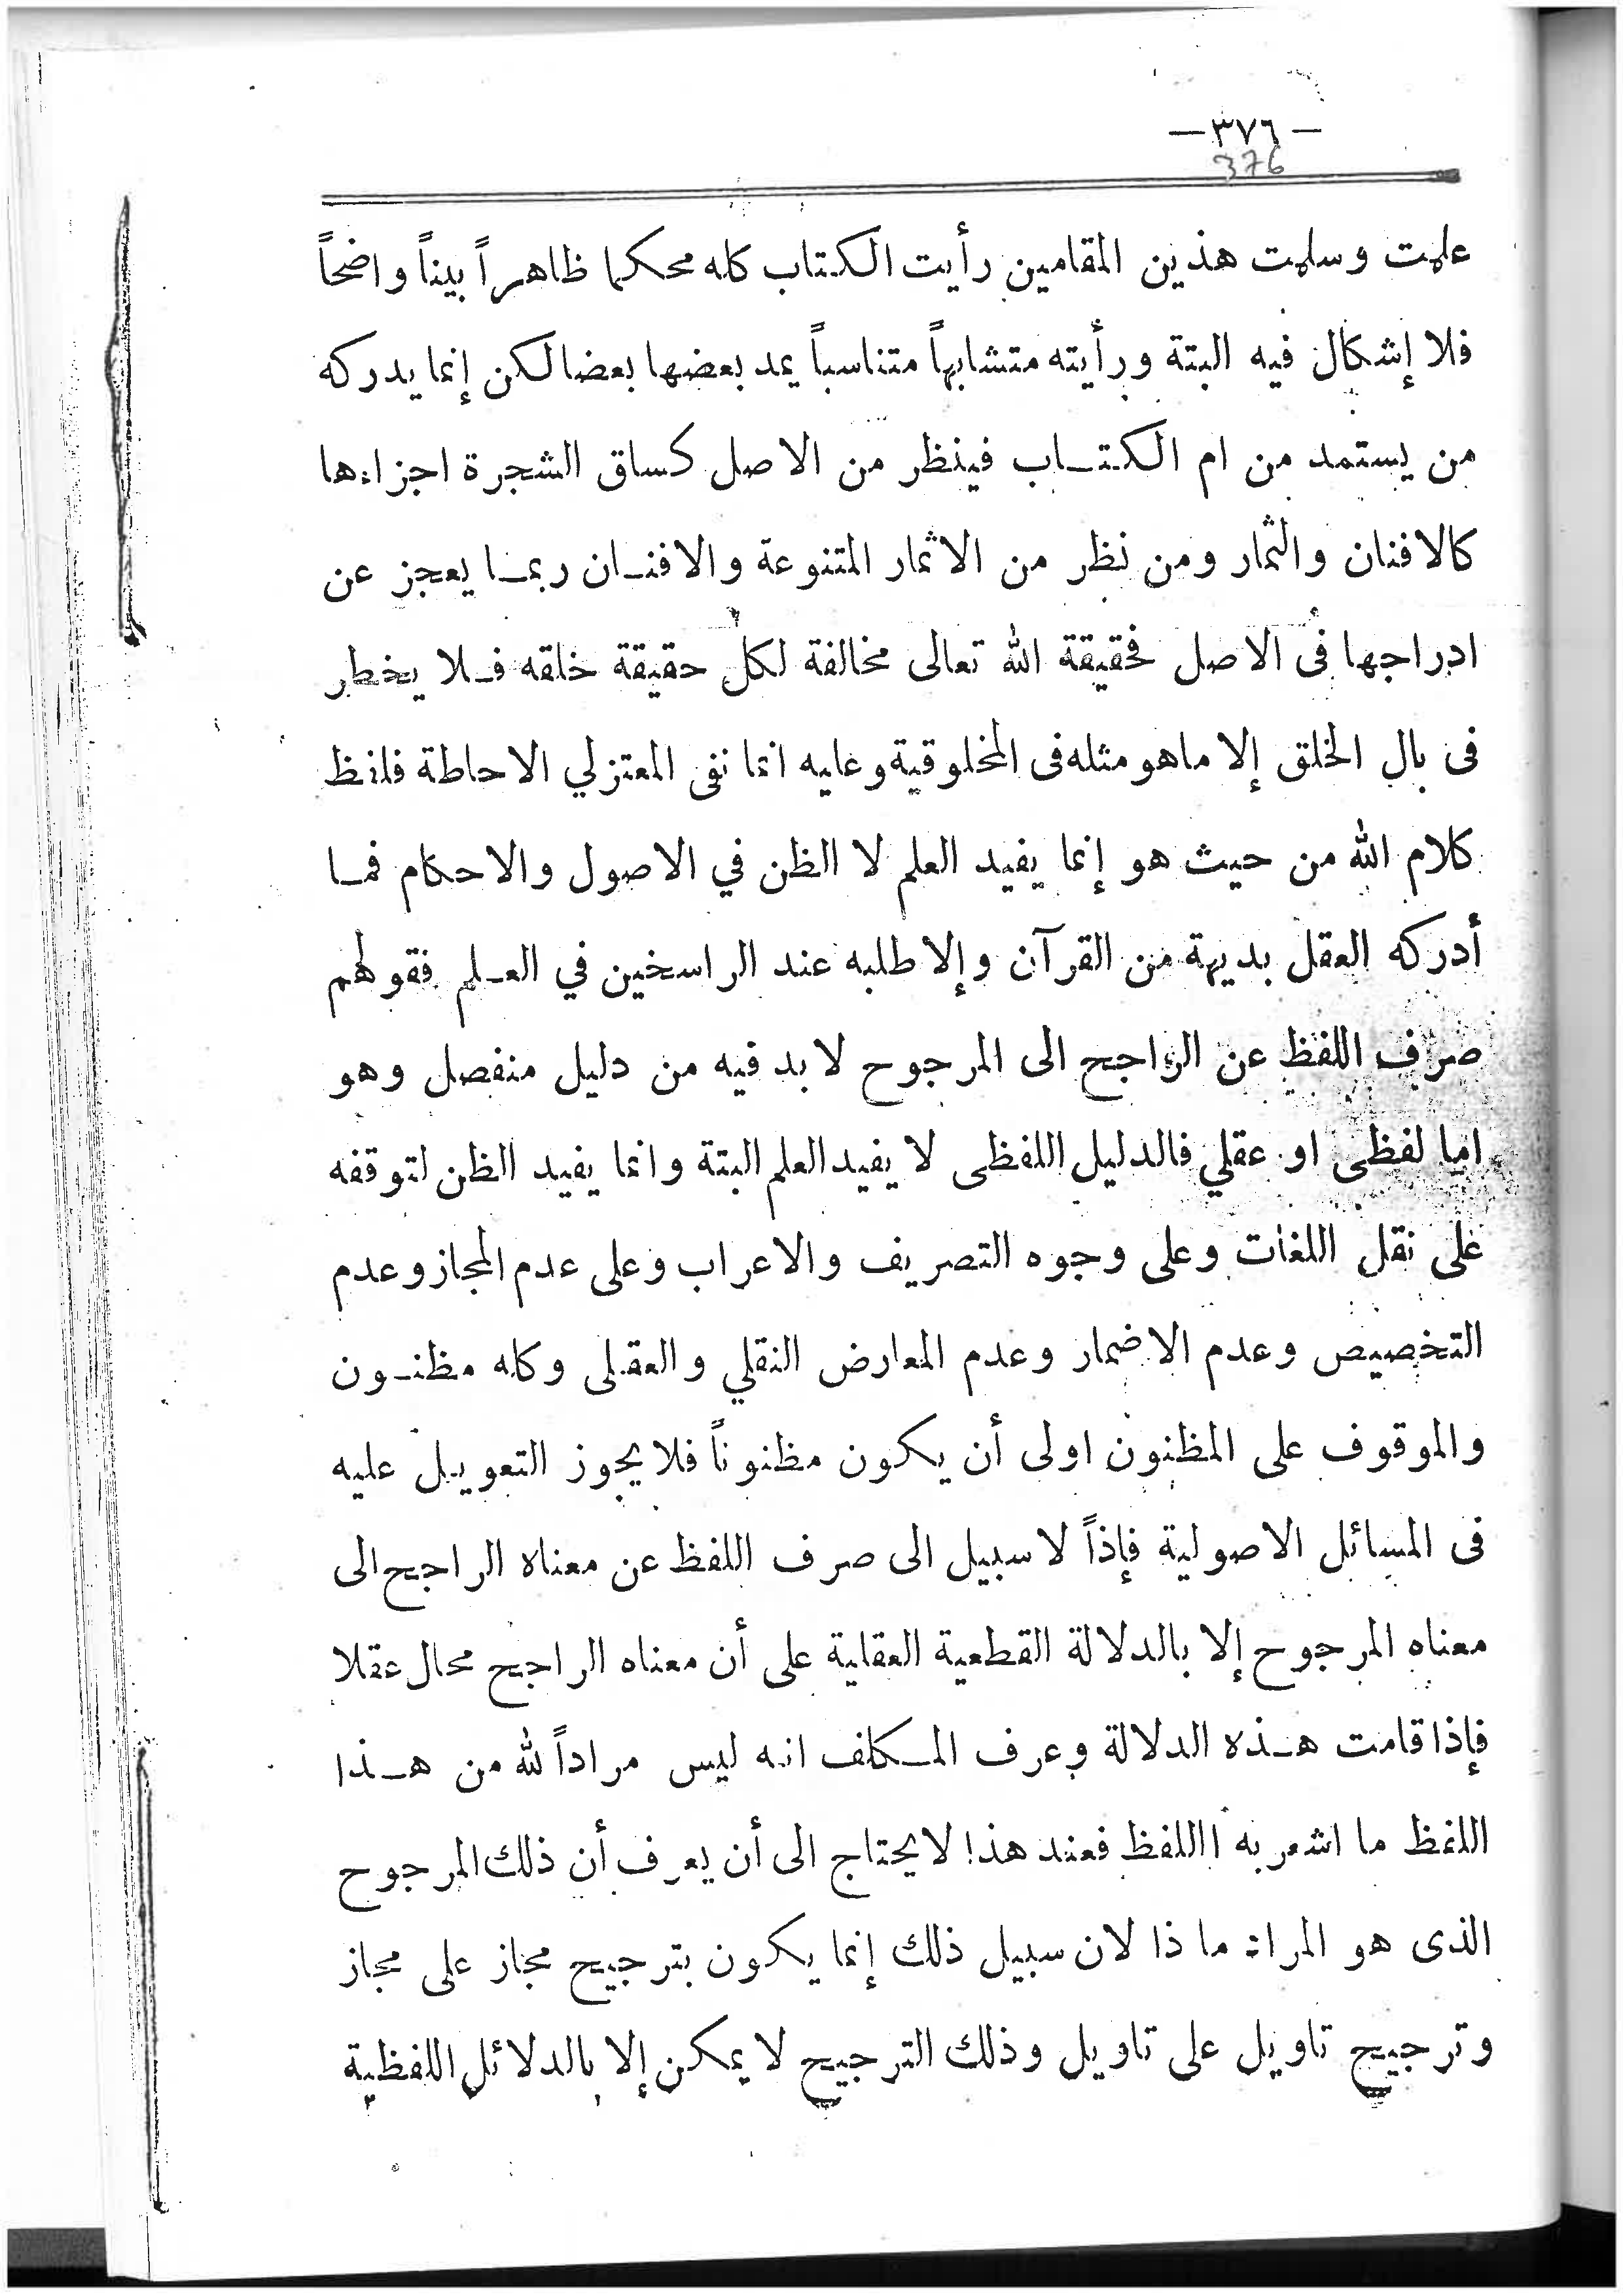 — ٣٧٦ —
376
علمت وسلمت هذين المقامين رأيت الكتاب كله محكما ظاهراً بيناً واضحاً
فلا إشكال فيه البتة ورأيته متشابهاً متناسباً يمد بعضها بعضا لكن إنما يدركه
من يستمد من ام الكتاب فينظر من الاصل كساق الشجرة اجزاءها
كالافنان والثمار ومن نظر من الاثمار المتنوعة والافنان ربما يعجز عن
ادراجها فى الاصل فحقيقة الله تعالى مخالفة لكل حقيقة خلقه فلا يخطر
فى بال الخلق إلا ماهو مثله فى المخلوقية وعليه انما نفى المعتزلي الاحاطة فلفظ
كلام الله من حيث هو إنما يفيد العلم لا الظن في الاصول والاحكام فما
أدركه العقل بديهة من القرآن وإلا طلبه عند الراسخين في العلم فقولهم
صرف اللفظ عن الراجح الى المرجوح لا بد فيه من دليل منفصل وهو
اما لفظى او عقلي فالدليل اللفظى لا يفيد العلم البتة وانما يفيد الظن لتوقفه
على نقل اللغات وعلى وجوه التصريف والاعراب وعلى عدم المجاز وعدم
التخصيص وعدم الاضمار وعدم المعارض النقلي والعقلى وكله مظنون
والموقوف على المظنون اولى أن يكون مظنوناً فلا يجوز التعويل عليه
فى المسائل الاصولية فإذاً لا سبيل الى صرف اللفظ عن معناه الراجح الى
معناه المرجوح إلا بالدلالة القطعية العقلية على أن معناه الراجح محال عقلا
فإذا قامت هذه الدلالة وعرف المكلف انه ليس مراداً لله من هذا
اللفظ ما اشعر به اللفظ فعند هذا لا يحتاج الى أن يعرف أن ذلك المرجوح
الذى هو المراد ما ذا لان سبيل ذلك إنما يكون بترجيح مجاز على مجاز
وترجيح تاويل على تاويل وذلك الترجيح لا يمكن إلا بالدلائل اللفظية